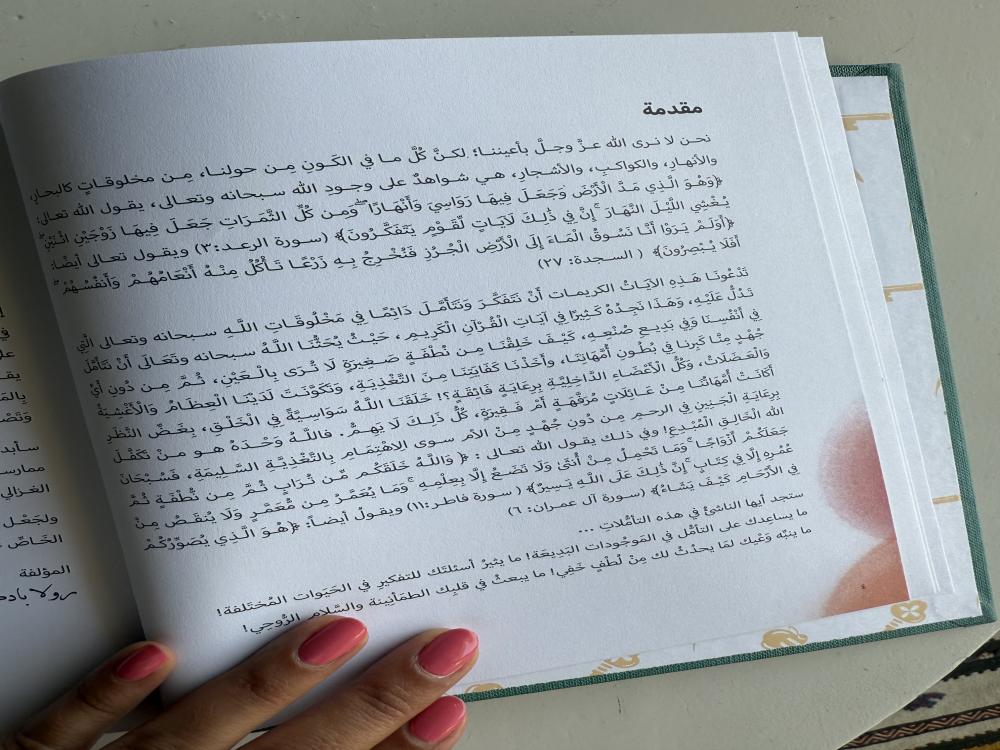 مقدمة
نحن لا نرى الله عزَّ وجلَّ بأعيننا؛ لكنَّ كُلَّ ما في الكَونِ مِن حولنا، مِن مخلوقاتٍ كالبحار،
والأنهار، والكواكب، والأشجار، هي شواهدٌ على وجودِ الله سبحانه وتعالى، يقول الله تعالى:
﴿وَهُوَ الَّذِي مَدَّ الْأَرْضَ وَجَعَلَ فِيهَا رَوَاسِيَ وَأَنْهَارًا ۖ وَمِن كُلِّ الثَّمَرَاتِ جَعَلَ فِيهَا زَوْجَيْنِ اثْنَيْنِ ۖ
يُغْشِي اللَّيْلَ النَّهَارَ ۚ إِنَّ فِي ذَٰلِكَ لَآيَاتٍ لِّقَوْمٍ يَتَفَكَّرُونَ﴾ (سورة الرعد:٣) ويقول تعالى أيضًا:
﴿أَوَلَمْ يَرَوْا أَنَّا نَسُوقُ الْمَاءَ إِلَى الْأَرْضِ الْجُرُزِ فَنُخْرِجُ بِهِ زَرْعًا تَأْكُلُ مِنْهُ أَنْعَامُهُمْ وَأَنفُسُهُمْ ۖ
أَفَلَا يُبْصِرُونَ﴾ (السجدة: ٢٧)
تَدْعُونَا هَذِهِ الآيَاتُ الكريمات أَنْ نَتَفَكَّرَ وَنَتَأَمَّلَ دَائِمًا فِي مَخْلُوقَاتِ اللَّهِ سبحانه وتعالى الَّتِي
تَدُلُّ عَلَيْهِ، وَهَذَا نَجِدُهُ كَثِيرًا فِي آيَاتِ الْقُرْآنِ الْكَرِيمِ، حَيْثُ يُحَثُّنَا اللَّهُ سبحانه وتَعَالَى أَنْ نَتَأَمَّلَ
فِي أَنْفُسِنَا وَفِي بَدِيعِ صُنْعِهِ، كَيْفَ خَلِقْنَا مِن نُطْفَةٍ صَغِيرَةٍ لَا تُرَى بِالْعَيْنِ، ثُمَّ مِن دُونِ أَيِّ
جُهْدٍ مِنَّا كَبِرنَا فِي بُطُونِ أُمَّهَاتِنَا، وأَخَذْنَا كَفَايَتِنَا مِنَ التَّغْذِيَةِ، وَتَكَوَّنَتَ لَدَيْنَا الْعِظَامُ وَالْأَغْشِيَةُ
وَالْعَضَلَاتُ، وَكُلُّ الْأَعْضَاءِ الدَّاخِلِيَّةِ بِرِعَايَةٍ فَائِقَةٍ؟! خَلَقَنَا اللَّهُ سَوَاسِيَّةً فِي الْخَلْقِ، بِغَضِّ النَّظَرِ
أَكَانَتْ أُمَّهَاتُنَا مِنْ عَائِلَاتٍ مُرَفَّهَةٍ أَمْ فَقِيرَةٍ، كُلُّ ذَلِكَ لَا يَهُمُّ. فاللَّهُ وَحْدَهُ هو مَنْ تَكَفَّلَ
بِرِعَايَةِ الْجَنِينِ فِي الرحمِ مِن دُونِ جُهْدٍ مِنَ الأم سوى الِاهْتِمَامِ بِالتَّغْذِيَّةِ السَّلِيمَةِ، فَسُبْحَانَ
الله الْخَالِقِ الْمُبْدِعِ! وفي ذلك يقول الله تعالى : ﴿ وَاللَّهُ خَلَقَكُم مِّن تُرَابٍ ثُمَّ مِن نُّطْفَةٍ ثُمَّ
جَعَلَكُمْ أَزْوَاجًا ۚ وَمَا تَحْمِلُ مِنْ أُنثَىٰ وَلَا تَضَعُ إِلَّا بِعِلْمِهِ ۚ وَمَا يُعَمَّرُ مِن مُّعَمَّرٍ وَلَا يُنقَصُ مِنْ
عُمُرِهِ إِلَّا فِي كِتَابٍ ۚ إِنَّ ذَٰلِكَ عَلَى اللَّهِ يَسِيرٌ﴾ (سورة فاطر:١١) ويقولُ أيضاً: ﴿هُوَ الَّذِي يُصَوِّرُكُمْ
فِي الْأَرْحَامِ كَيْفَ يَشَاءُ﴾ (سورة آل عمران: ٦)
ستجد أيها الناشئ في هذه التأمُّلات ...
ما يساعدك على التأمُّل في المَوجُودات البَدِيعَة! ما يثيرُ أسئلتَك للتفكيرِ في الحَيَوات المُختَلفة!
ما ينبِّه وَعْيك لمَا يحدُثُ لك مِنْ لُطْفٍ خَفِي! ما يبعثُ في قلبِك الطمَأنِينة والسَّلام الرُّوحِي!
سأبد
ممارس
الغزالي
ولجَعْل
الخَاصِّ
المؤلفة
رولا باد